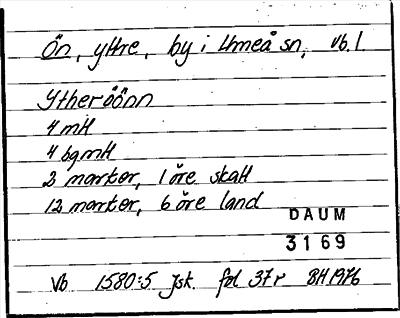 Ön, yttre, by i Umeå sn, Vb.l.
Ytheröönn
4 mtl
4 bgmtl
2 marker, 1 öre skatt
12 marker, 6 öre land
DAUM
3169
Vb 1580:5 Jsk. fol 37r BH 1976